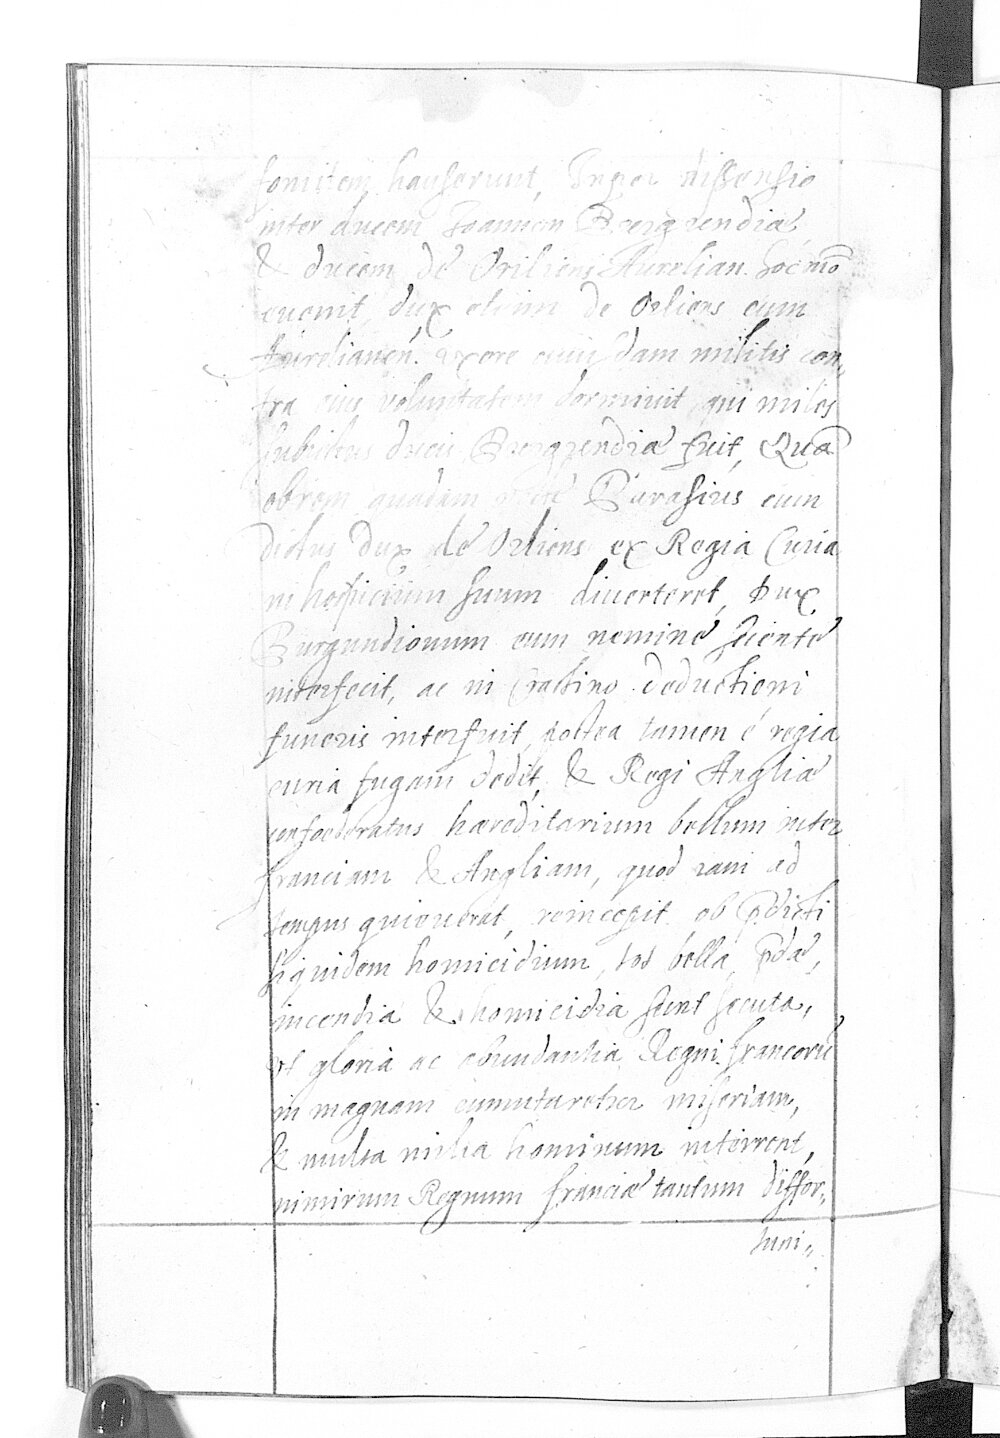 fomitem hauserunt, Inger dissensio
inter ducem Joannem Burgundiæ
& ducem de Orliens Aurelian. hoc mō
euenit, dux etenim de Orliens cum
Aurelianen. uxore cuiusdam militis con„
tra eius voluntatem dormiuit, qui miles
subditus ducis Burgundiæ fuit, Quā
obrem quadam nocte Parasius cum
dictus dux de Orliens ex Regia Curia
in hospicium suum diuerteret, Dux
Burgundionum eum nemine sciente
interfecit, ac in Crastino deductioni
funeris interfuit, postea tamen é regia
curia fugam dedit, & Regi Angliæ
confoederatus hæreditarium bellum inter
franciam & Angliam, quod iam ad
tempus quieuerat, reincepit ob p̄dicti
siquidem homicidium, tot bella, p̄dæ,
incendia & homicidia sunt secuta,
vt gloria ac abundantia Regni francorū
in magnam cumutaretur miseriam,
& multa milia hominum interirent,
nimirum Regnum franciæ tantum differ„
tuni„